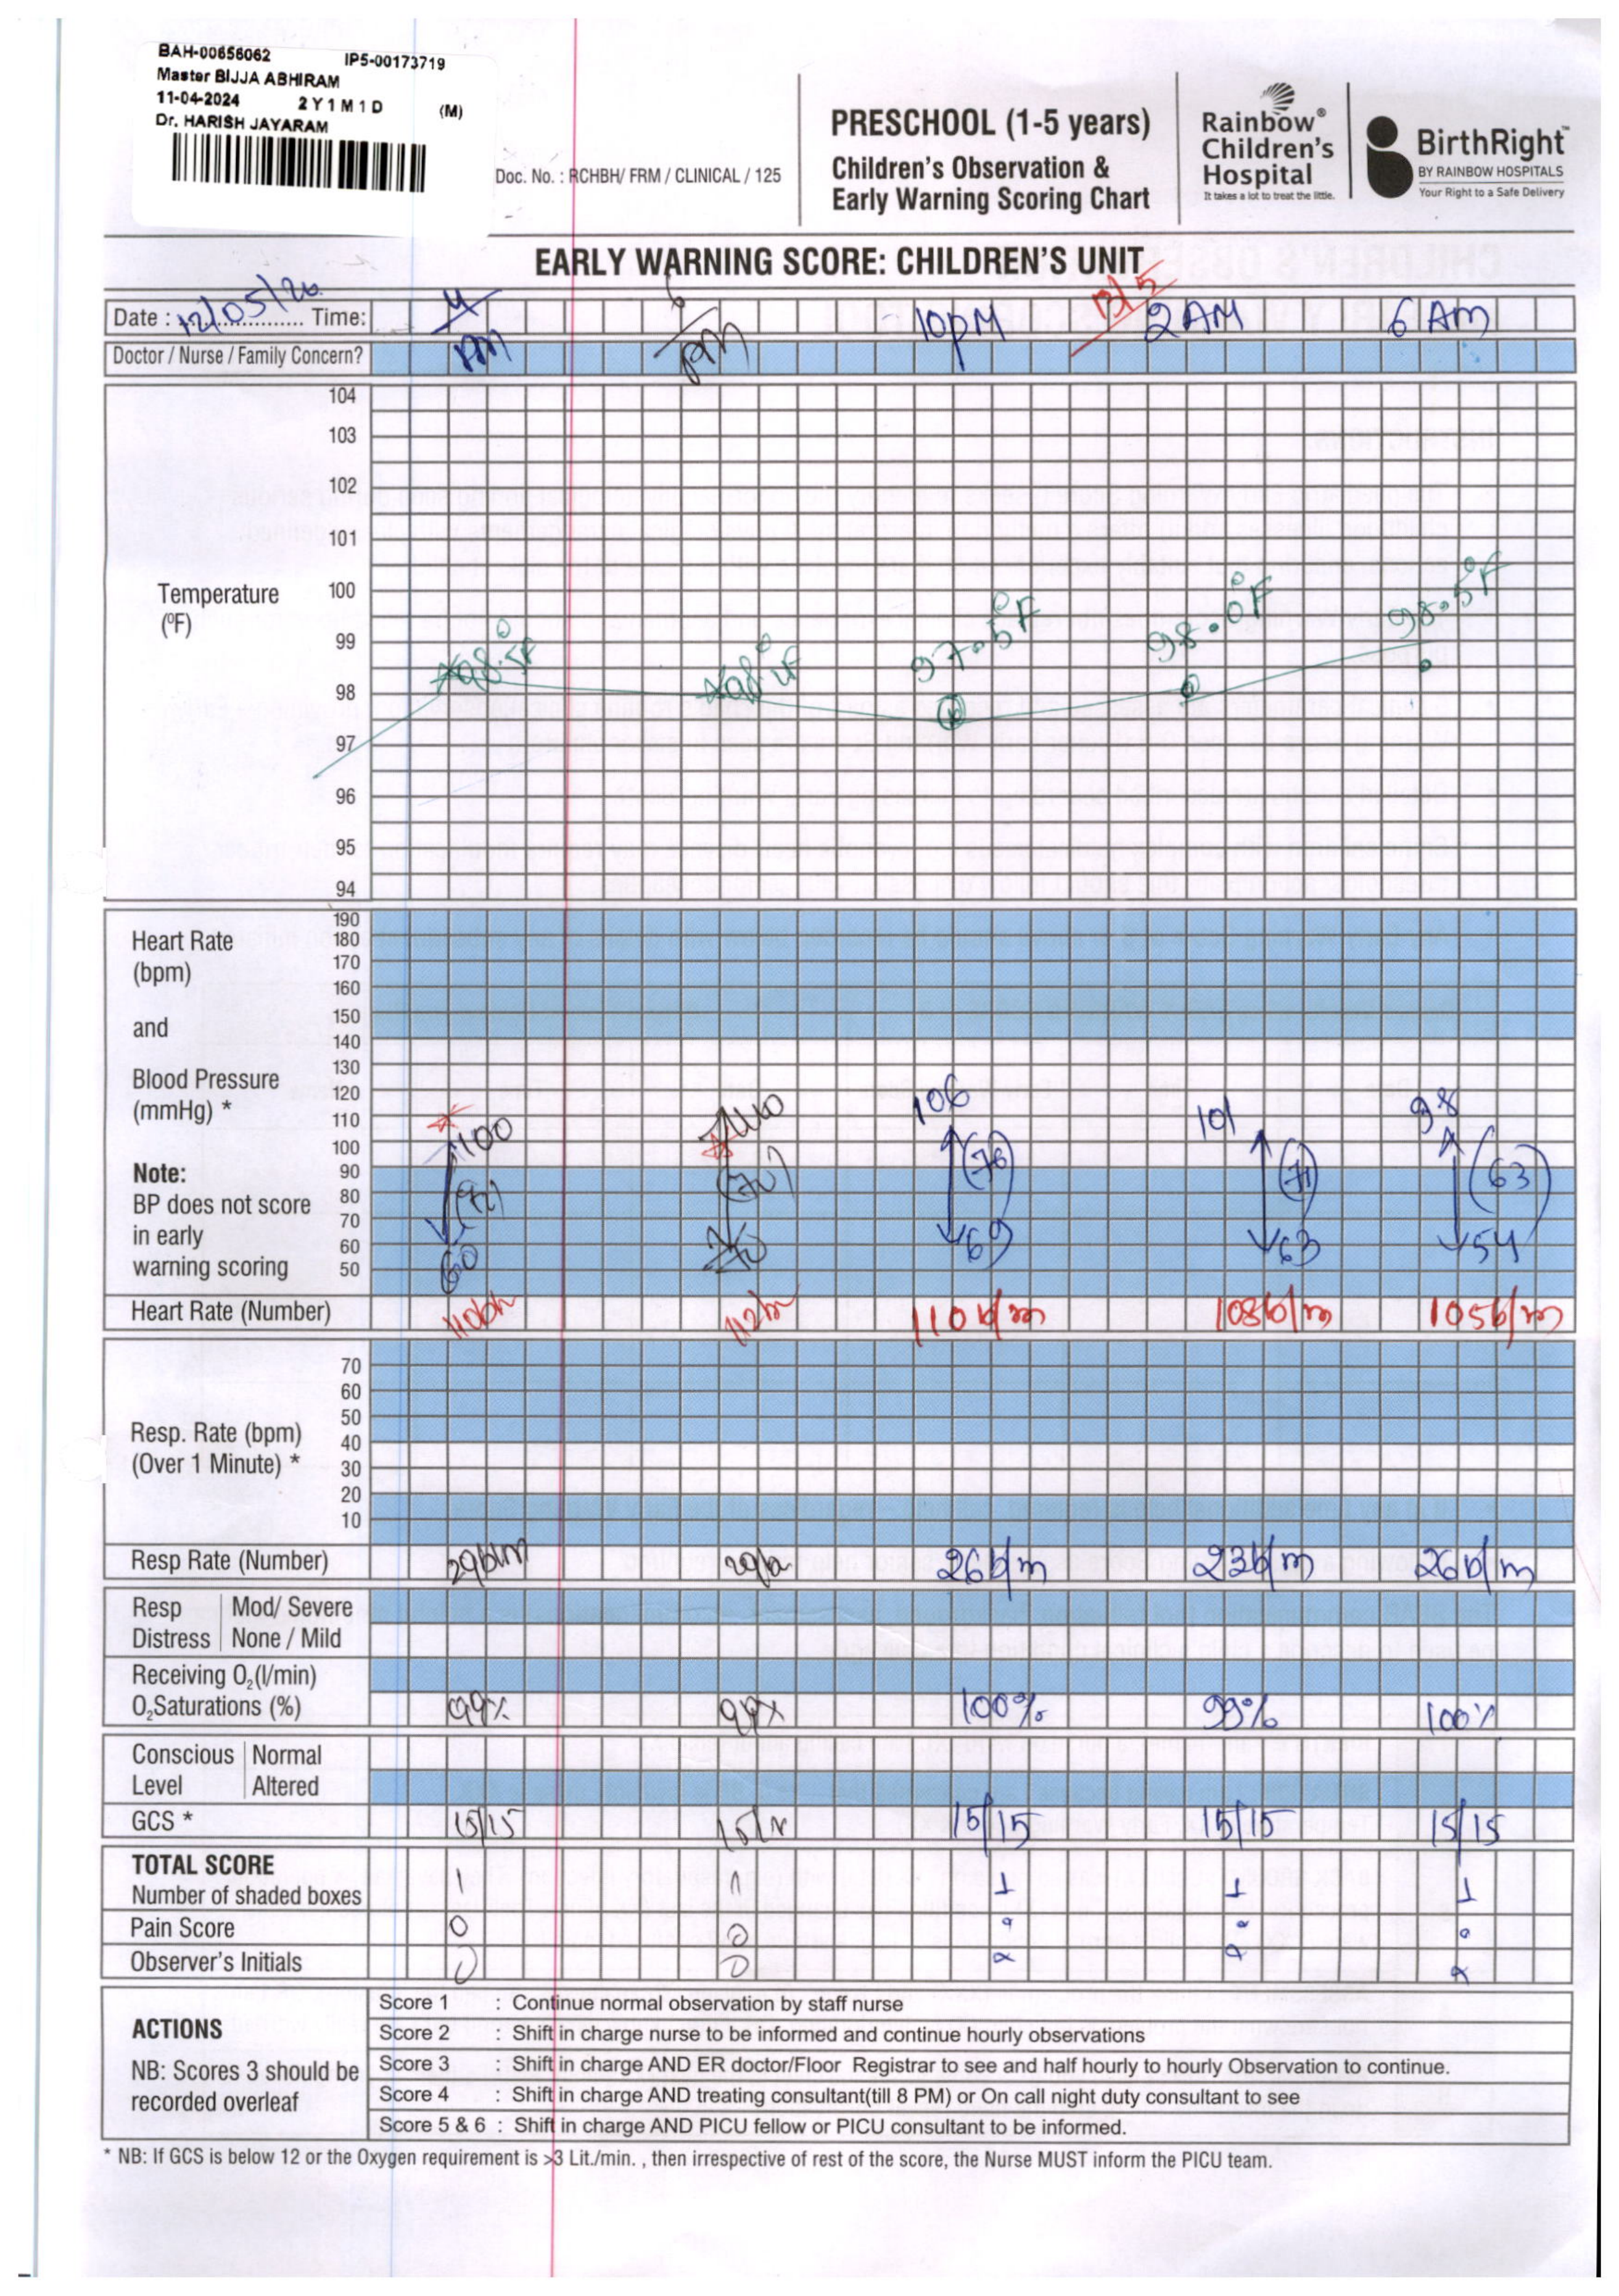 BAH-00656062 IP5-00173719
Master BIJJA ABHIRAM
11-04-2024 2 Y 1 M 1 D (M)
Dr. HARISH JAYARAM
Doc. No. : RCHBH/ FRM / CLINICAL / 125
PRESCHOOL (1-5 years)
Children's Observation &
Early Warning Scoring Chart
Rainbow®
Children's
Hospital
It takes a lot to treat the little.
BirthRight™
BY RAINBOW HOSPITALS
Your Right to a Safe Delivery
EARLY WARNING SCORE: CHILDREN'S UNIT
Date : 12/05/26 Time: 4 PM 6 PM 10PM 13/5 2 AM 6 AM
Doctor / Nurse / Family Concern?
104
103
102
101
Temperature 100
(ºF)
99
98
97
96
95
94
98.5F 97.5°F 98.0°F 98.5°F
190
Heart Rate 180
(bpm) 170
160
and 150
140
130
Blood Pressure 120
(mmHg) * 110
100
Note: 90
BP does not score 80
in early 70
warning scoring 60
50
100 106 101 98
(76) (71) (63)
60 69 63 54
Heart Rate (Number) 110b/m 112b/m 110b/m 108b/m 105b/m
70
60
50
Resp. Rate (bpm) 40
(Over 1 Minute) * 30
20
10
Resp Rate (Number) 29b/m 26b/m 23b/m 26b/m
Resp Distress Mod/ Severe
None / Mild
Receiving O₂(l/min)
O₂Saturations (%) 99% 99% 100% 99% 100%
Conscious Level Normal
Altered
GCS * 15/15 15/15 15/15 15/15 15/15
TOTAL SCORE
Number of shaded boxes 1 1 1 1 1
Pain Score 0 0 0 0 0
Observer's Initials
ACTIONS
NB: Scores 3 should be
recorded overleaf
Score 1 : Continue normal observation by staff nurse
Score 2 : Shift in charge nurse to be informed and continue hourly observations
Score 3 : Shift in charge AND ER doctor/Floor Registrar to see and half hourly to hourly Observation to continue.
Score 4 : Shift in charge AND treating consultant(till 8 PM) or On call night duty consultant to see
Score 5 & 6 : Shift in charge AND PICU fellow or PICU consultant to be informed.
* NB: If GCS is below 12 or the Oxygen requirement is >3 Lit./min. , then irrespective of rest of the score, the Nurse MUST inform the PICU team.